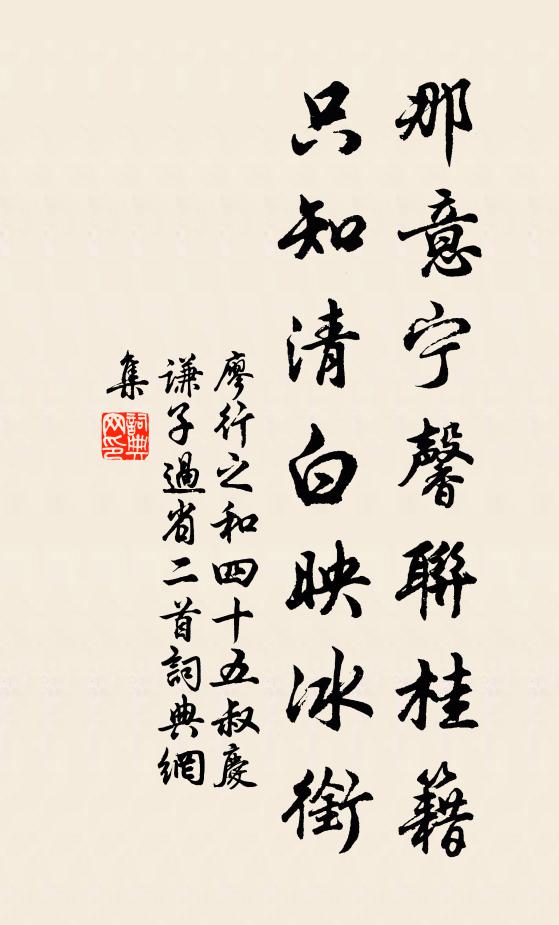 那意宁馨聯桂籍
只知清白映冰銜
廖行之和四十五叔慶
謙子過省二首詞典網
集
詞典
网印